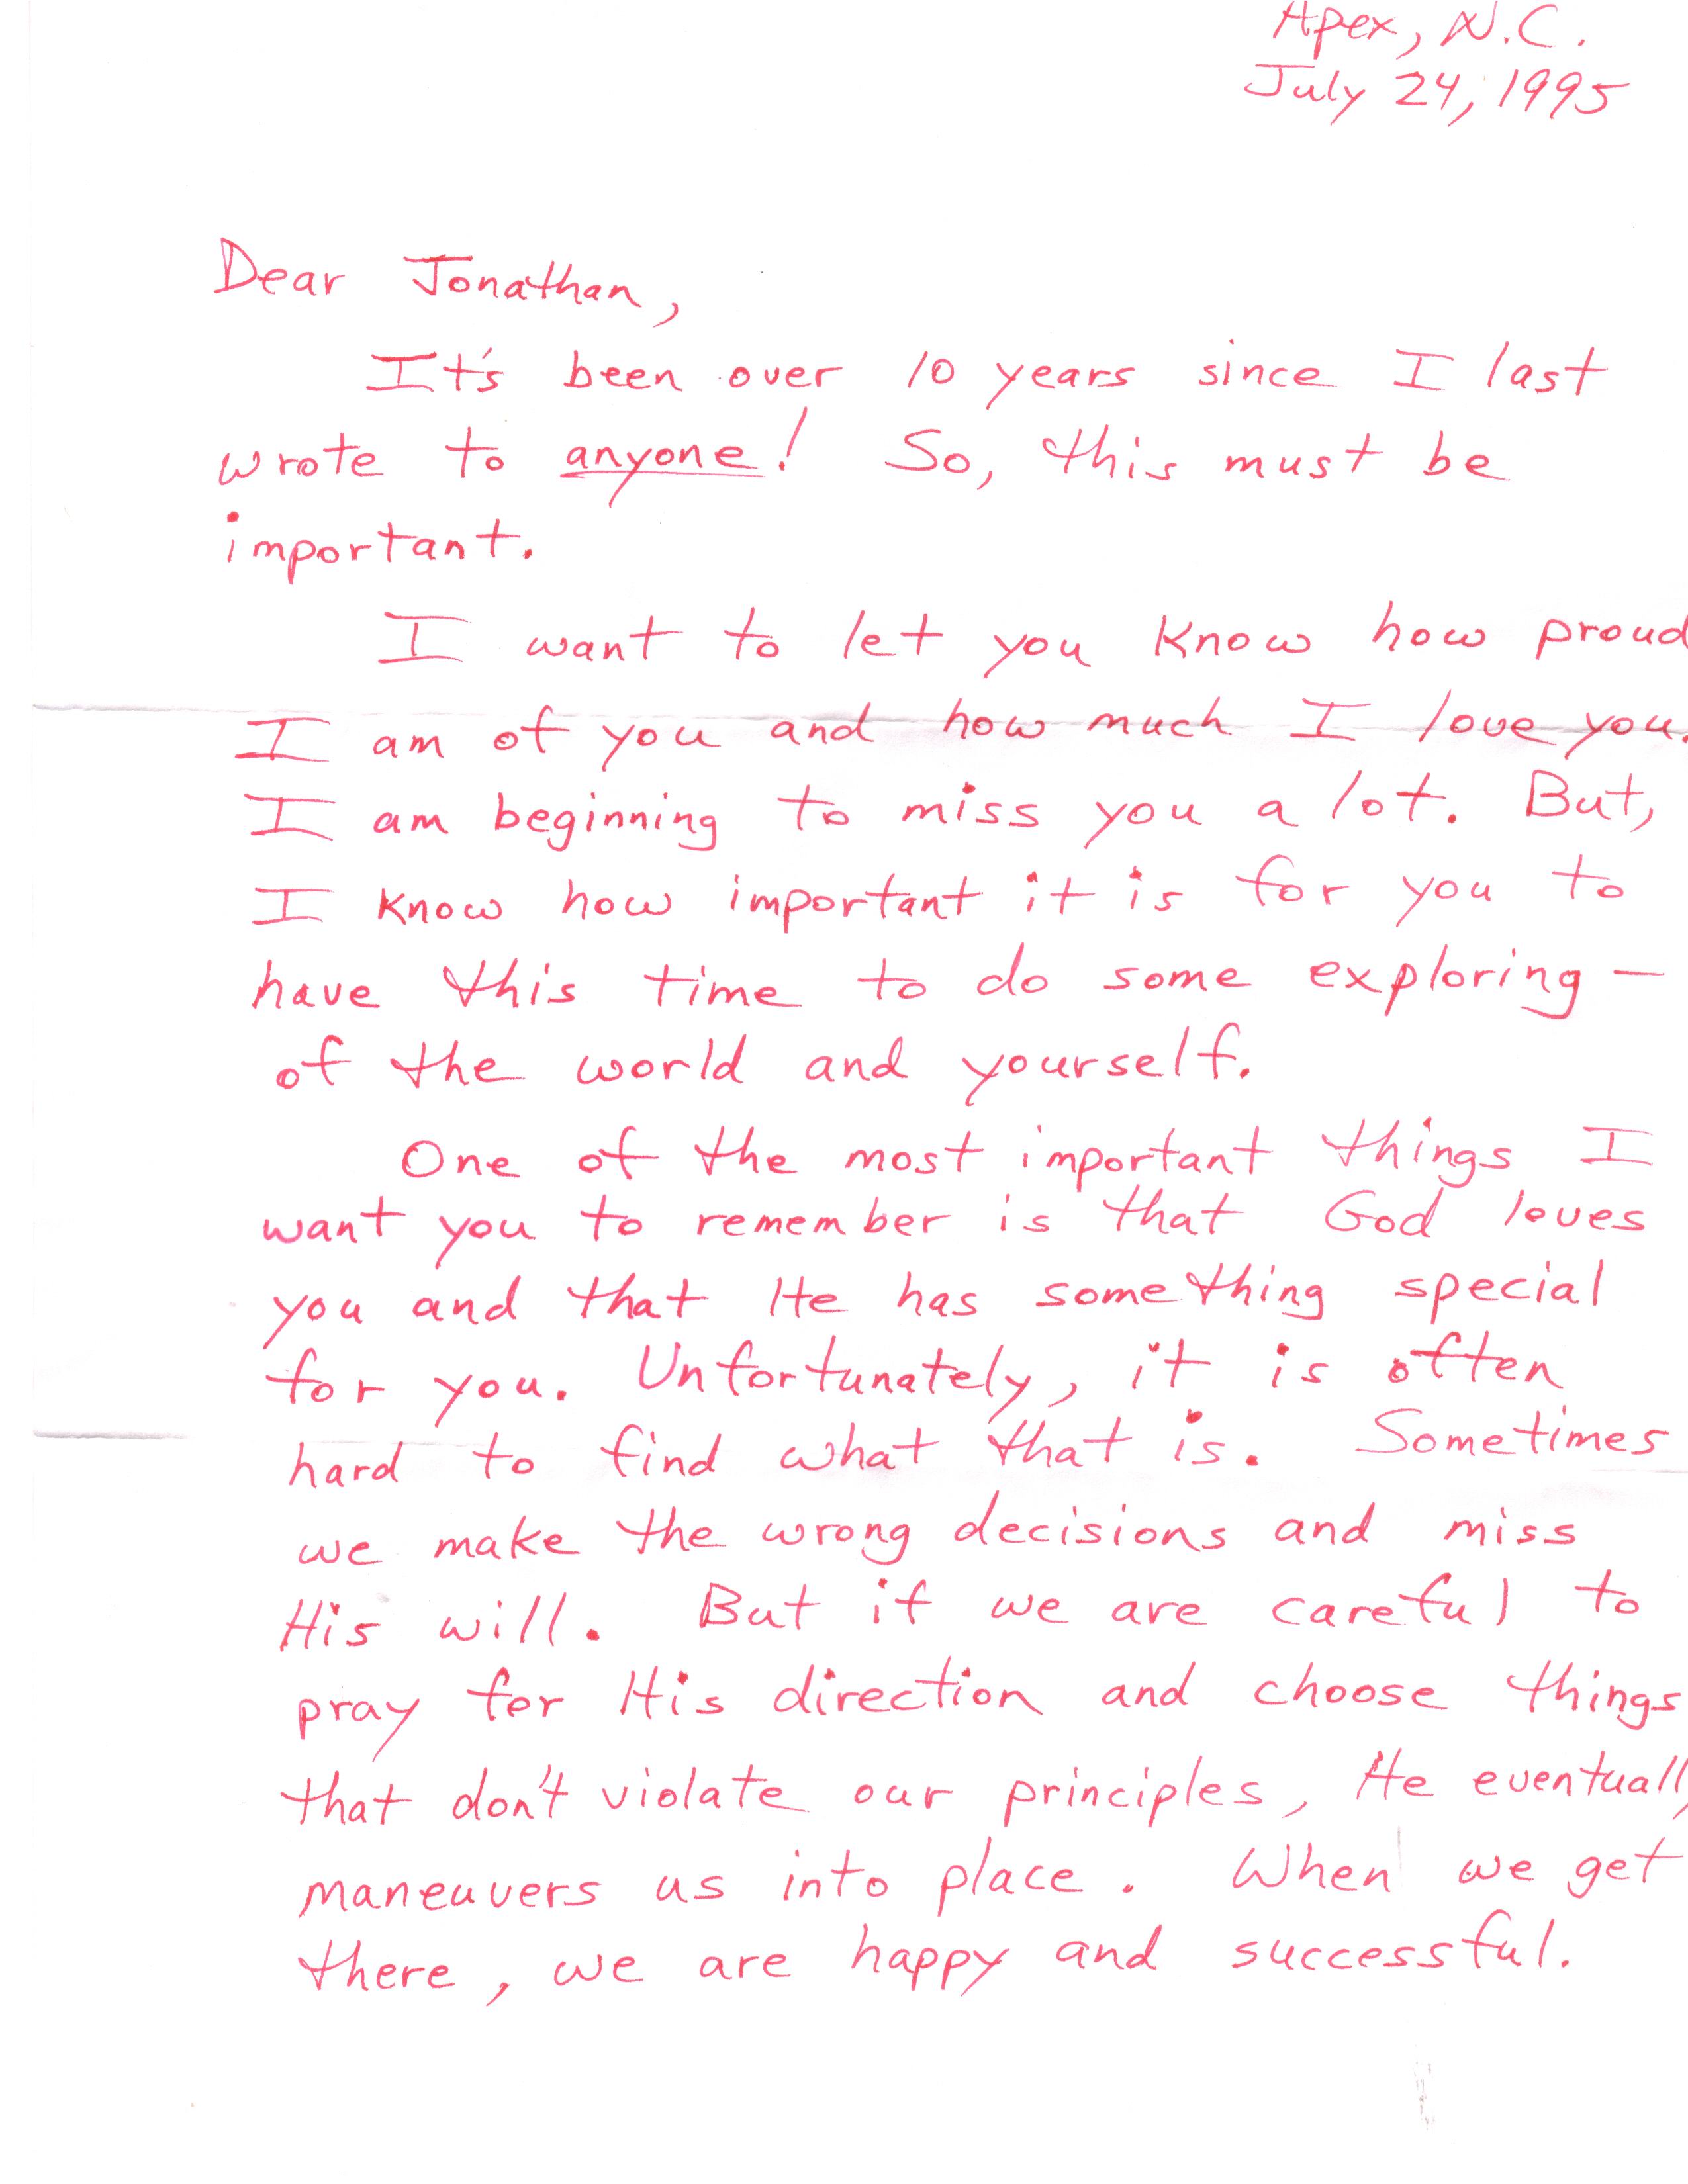 Apex, N.C.
July 24, 1995
Dear Jonathan,
It's been over 10 years since I last
wrote to anyone! So, this must be
important.
I want to let you know how proud
I am of you and how much I love you.
I am beginning to miss you a lot. But,
I know how important it is for you to
have this time to do some exploring —
of the world and yourself.
One of the most important things I
want you to remember is that God loves
you and that He has something special
for you. Unfortunately, it is often
hard to find what that is. Sometimes
we make the wrong decisions and miss
His will. But if we are careful to
pray for His direction and choose things
that don't violate our principles, He eventually
maneuvers us into place. When we get
there, we are happy and successful.